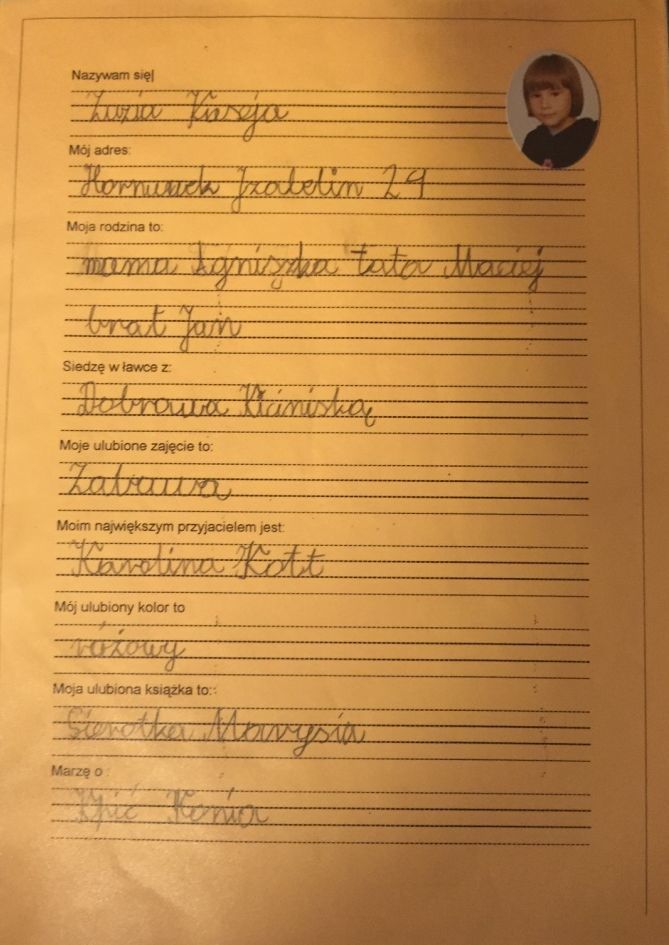 Nazywam się
Zuzia Kaseja
Mój adres:
Hornówek Izabelin 29
Moja rodzina to:
mama Agniszka tata Maciej
brat Jan
Siedzę w ławce z:
Dobrawa
Moje ulubione zajęcie to:
Zabawa
Moim największym przyjacielem jest:
Karolina Kott
Mój ulubiony kolor to
różowy
Moja ulubiona książka to:
Sierotka Marysia
Marzę o :
Kpić Konia